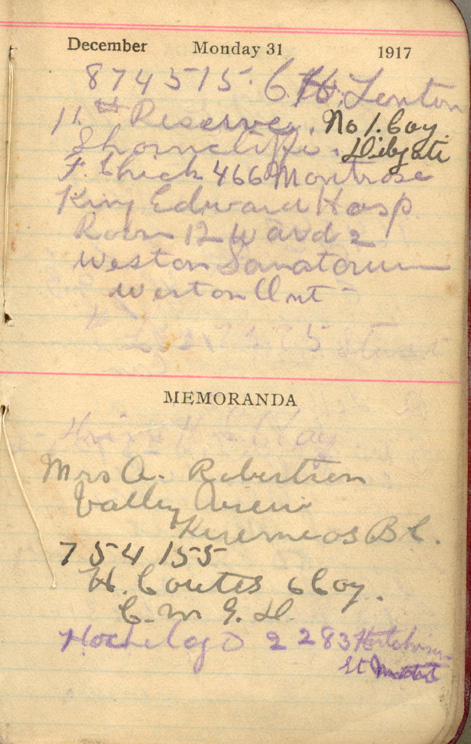 December Monday 31 1917
874515. C H. Lenton
11th Reserve. No 1. Coy.
Shorncliffe. Dibgate
F. Chick 466 Montrose
King Edward Hosp
Room 12 Ward 2
Weston Sanatorium
Weston Ont -
MEMORANDA
Mrs A. Robertson
Valley View
Keremeos B.C.
754155
H. Coutes 6 Coy.
C. M G. D.
Hochelaga 2283 Hutchison
St